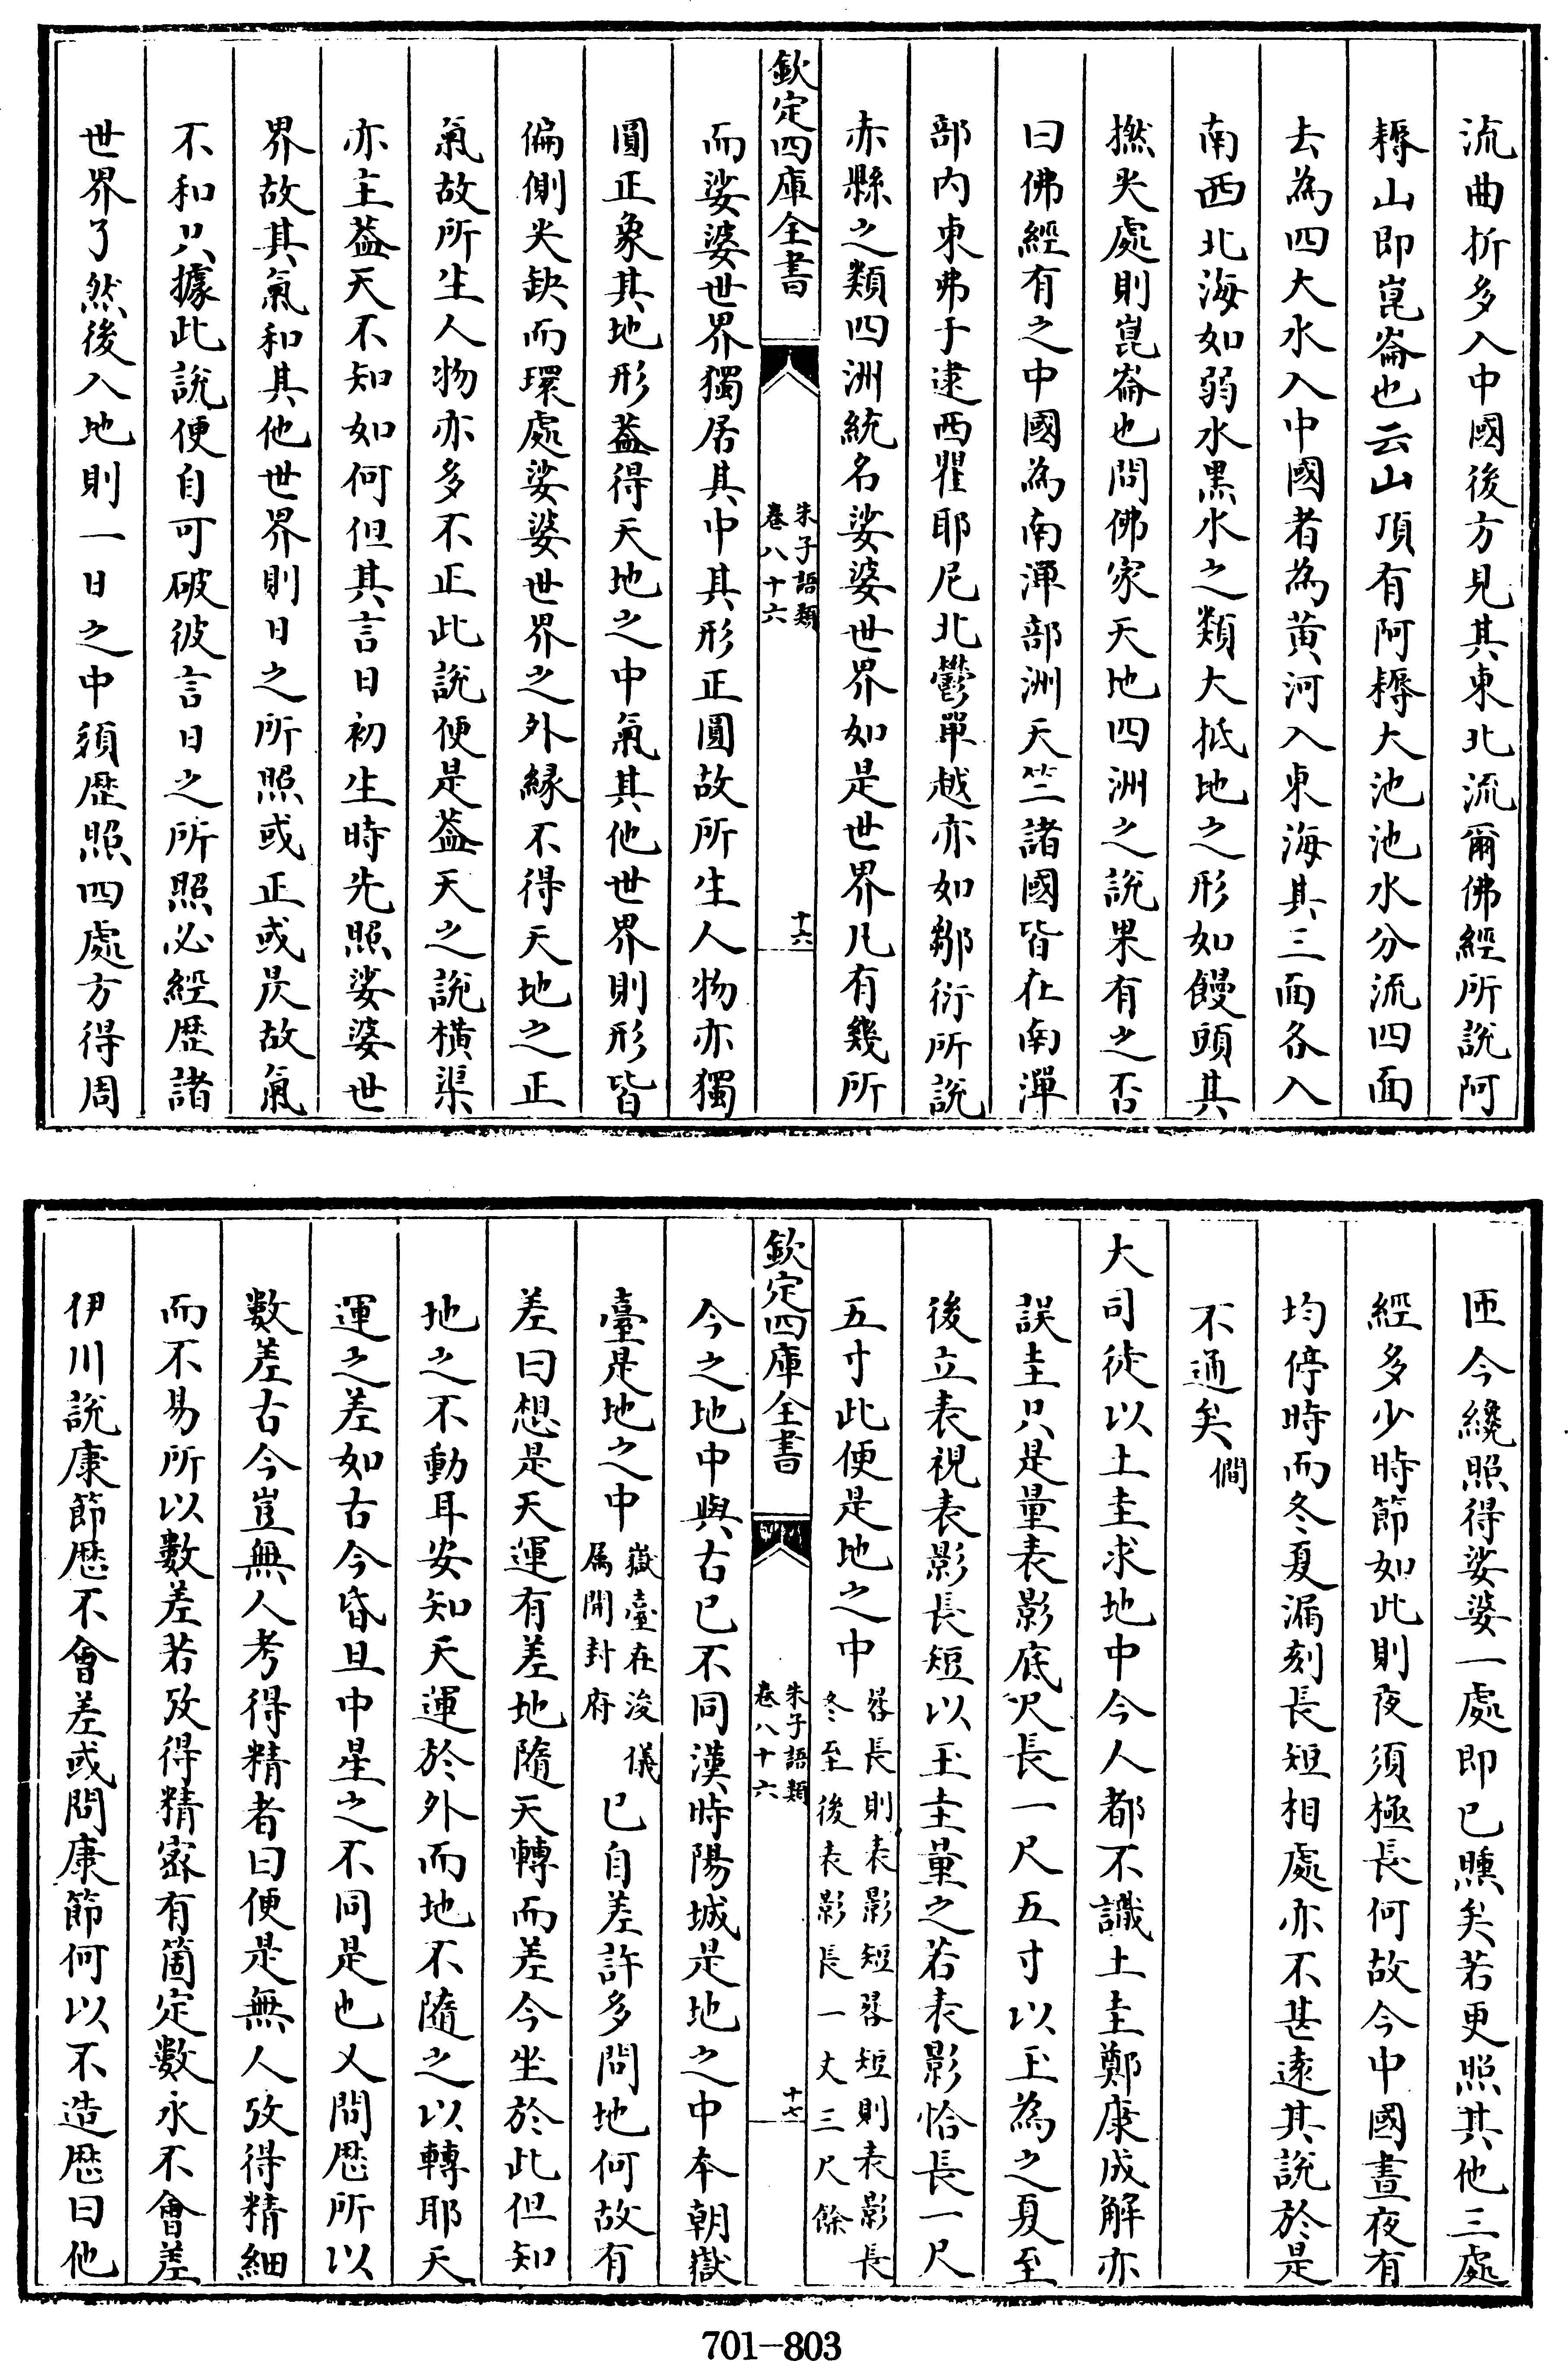 流曲折多入中國後方見其東北流爾佛經所說阿
耨山即崑崙也云山頂有阿耨大池池水分流四面
去為四大水入中國者為黄河入東海其三面各入
南西北海如弱水黒水之類大抵地之形如饅頭其
撚尖處則崑崙也問佛家天地四洲之說果有之否
曰佛經有之中國為南潬部洲天竺諸國皆在南潬
部内東弗于逮西瞿耶尼北鬱單越亦如鄒衍所說
赤縣之類四洲統名娑婆世界如是世界凡有幾所
欽定四庫全書
朱子語類
卷八十六
十六
而娑婆世界獨居其中其形正圓故所生人物亦獨
圓正象其地形葢得天地之中氣其他世界則形皆
偏側尖缺而環處娑婆世界之外緣不得天地之正
氣故所生人物亦多不正此說便是葢天之說橫渠
亦主葢天不知如何但其言日初生時先照娑婆世
界故其氣和其他世界則日之所照或正或昃故氣
不和只據此說便自可破彼言日之所照必經歴諸
世界了然後入地則一日之中須歴照四處方得周
匝今纔照得娑婆一處即已曛矣若更照其他三處
經多少時節如此則夜須極長何故今中國晝夜有
均停時而冬夏漏刻長短相處亦不甚逺其說於是
不通矣僴
大司徒以土圭求地中今人都不識土圭鄭康成解亦
誤圭只是量表影底尺長一尺五寸以玉為之夏至
後立表視表影長短以玉圭量之若表影恰長一尺
五寸此便是地之中晷長則表影短晷短則表影長
冬至後表影長一丈三尺餘
欽定四庫全書
朱子語類
卷八十六
十七
今之地中與古已不同漢時陽城是地之中本朝嶽
臺是地之中嶽臺在浚儀
属開封府已自差許多問地何故有
差曰想是天運有差地隨天轉而差今坐於此但知
地之不動耳安知天運於外而地不隨之以轉耶天
運之差如古今昏旦中星之不同是也又問厯所以
數差古今豈無人考得精者曰便是無人攷得精細
而不易所以數差若攷得精宻有箇定數永不會差
伊川說康節厯不會差或問康節何以不造厯曰他
701-803